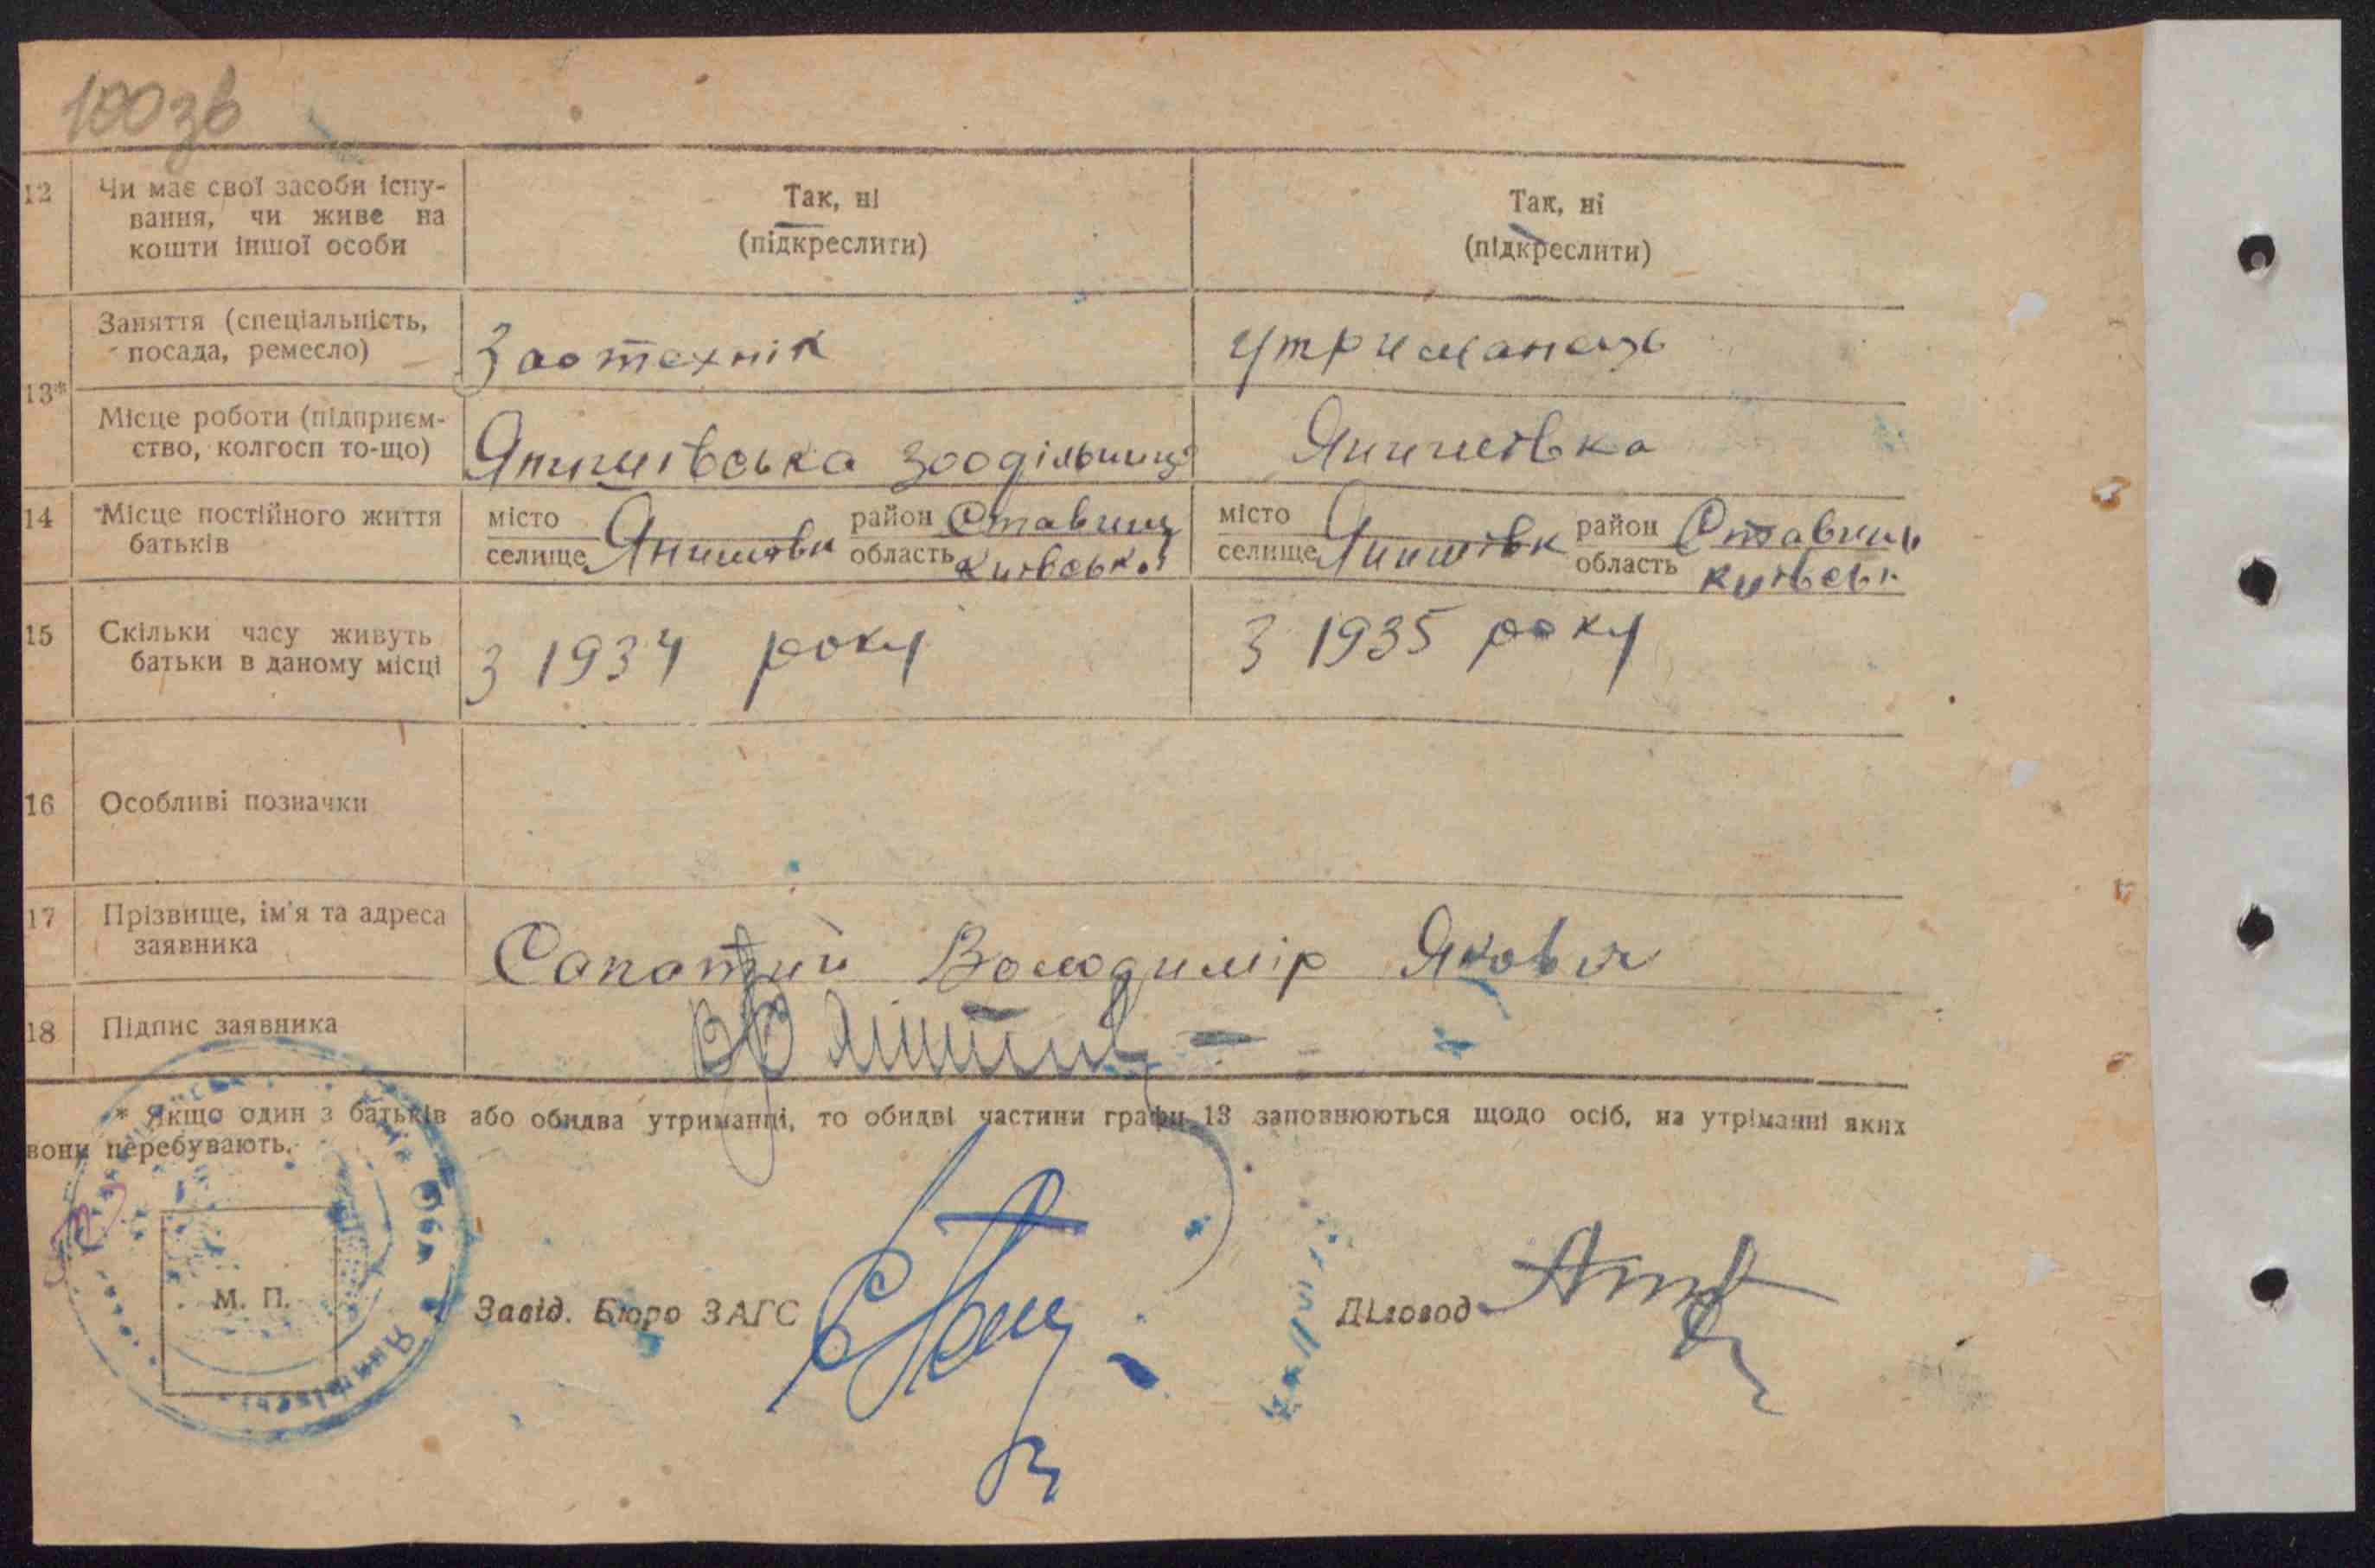 100зв
12 Чи має свої засоби існу-
вання, чи живе на
кошти іншої особи
Так, ні
(підкреслити)
Так, ні
(підкреслити)
13*
Заняття (спеціальність,
посада, ремесло)
Заотехнік
утриманець
Місце роботи (підприєм-
ство, колгосп то-що)
Янишівська зоодільниця
Янишівка
14 Місце постійного життя
батьків
місто
селище Янишівк
район Ставищ
область Київська
місто
селище Янишівк
район Ставищ
область Київськ
15 Скільки часу живуть
батьки в даному місці
З 1934 року
З 1935 року
16 Особливі позначки
17 Прізвище, ім'я та адреса
заявника
Володимір Якович
18 Підпис заявника
* Якщо один з батьків або обидва утриманці, то обидві частини графи 13 заповнюються щодо осіб, на утріманні яких
вони перебувають.
М. П.
Завід. Бюро ЗАГС
Діловод